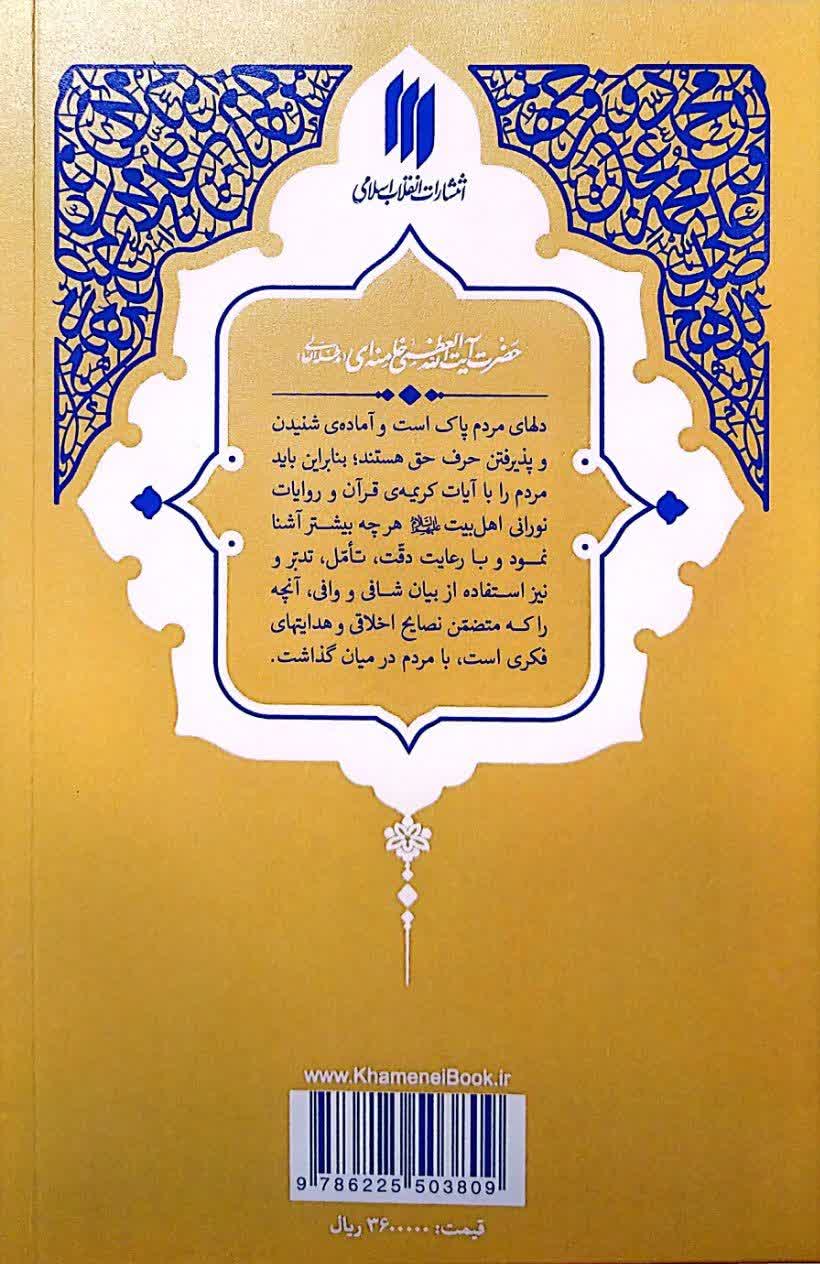 انتشارات انقلاب اسلامی
حضرت آیت‌الله العظمی خامنه‌ای
دلهای مردم پاک است و آماده‌ی شنیدن
و پذیرفتن حرف حق هستند؛ بنابراین باید
مردم را با آیات کریمه‌ی قرآن و روایات
نورانی اهل‌بیت علیهم‌السلام هر چه بیشتر آشنا
نمود و با رعایت دقّت، تأمّل، تدبّر و
نیز استفاده از بیان شافی و وافی، آنچه
را که متضمّن نصایح اخلاقی و هدایتهای
فکری است، با مردم در میان گذاشت.
www.KhameneiBook.ir
9 786225 503809
قیمت: ۳۶۰۰۰۰۰ ریال